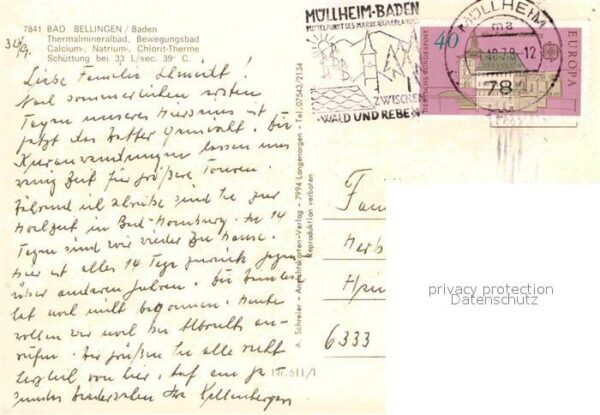 7841 BAD BELLINGEN / Baden
Thermalmineralbad, Bewegungsbad
Calcium-, Natrium-, Chlorit-Therme
Schüttung bei 33 L/sec. 39° C.
Liebe Familie Schmidt!
Nach sommerlichen ersten
Tagen unseres Hierseins ist
jetzt das Wetter
lassen uns
wenig Zeit für größere Touren.
Während ich schreibe sind Sie zur
Hochzeit in Bad-Homburg. In 14
Tagen sind wir wieder zu Hause.
Hier ist alles 14 Tage zurück gegen-
über anderen Jahren. Die
hat noch nicht begonnen. Heute
wollen wir noch bei Albrechts an-
rufen. Wir grüßen Sie alle recht
herzlich von hier, auf ein ge-
sundes Wiedersehen Ihre Kellenbergers
A. Schreier - Ansichtskarten-Verlag - 7994 Langenargen - Tel. 07543/2134
Reproduktion verboten
Nr. 511/1
MÜLLHEIM-BADEN
MITTELPUNKT DES MARKGRÄFLERLANDES
ZWISCHEN
WALD UND REBEN
MÜLLHEIM
ma
78
40
DEUTSCHE BUNDESPOST
EUROPA
Fam
Herb
6333
privacy protection
Datenschutz